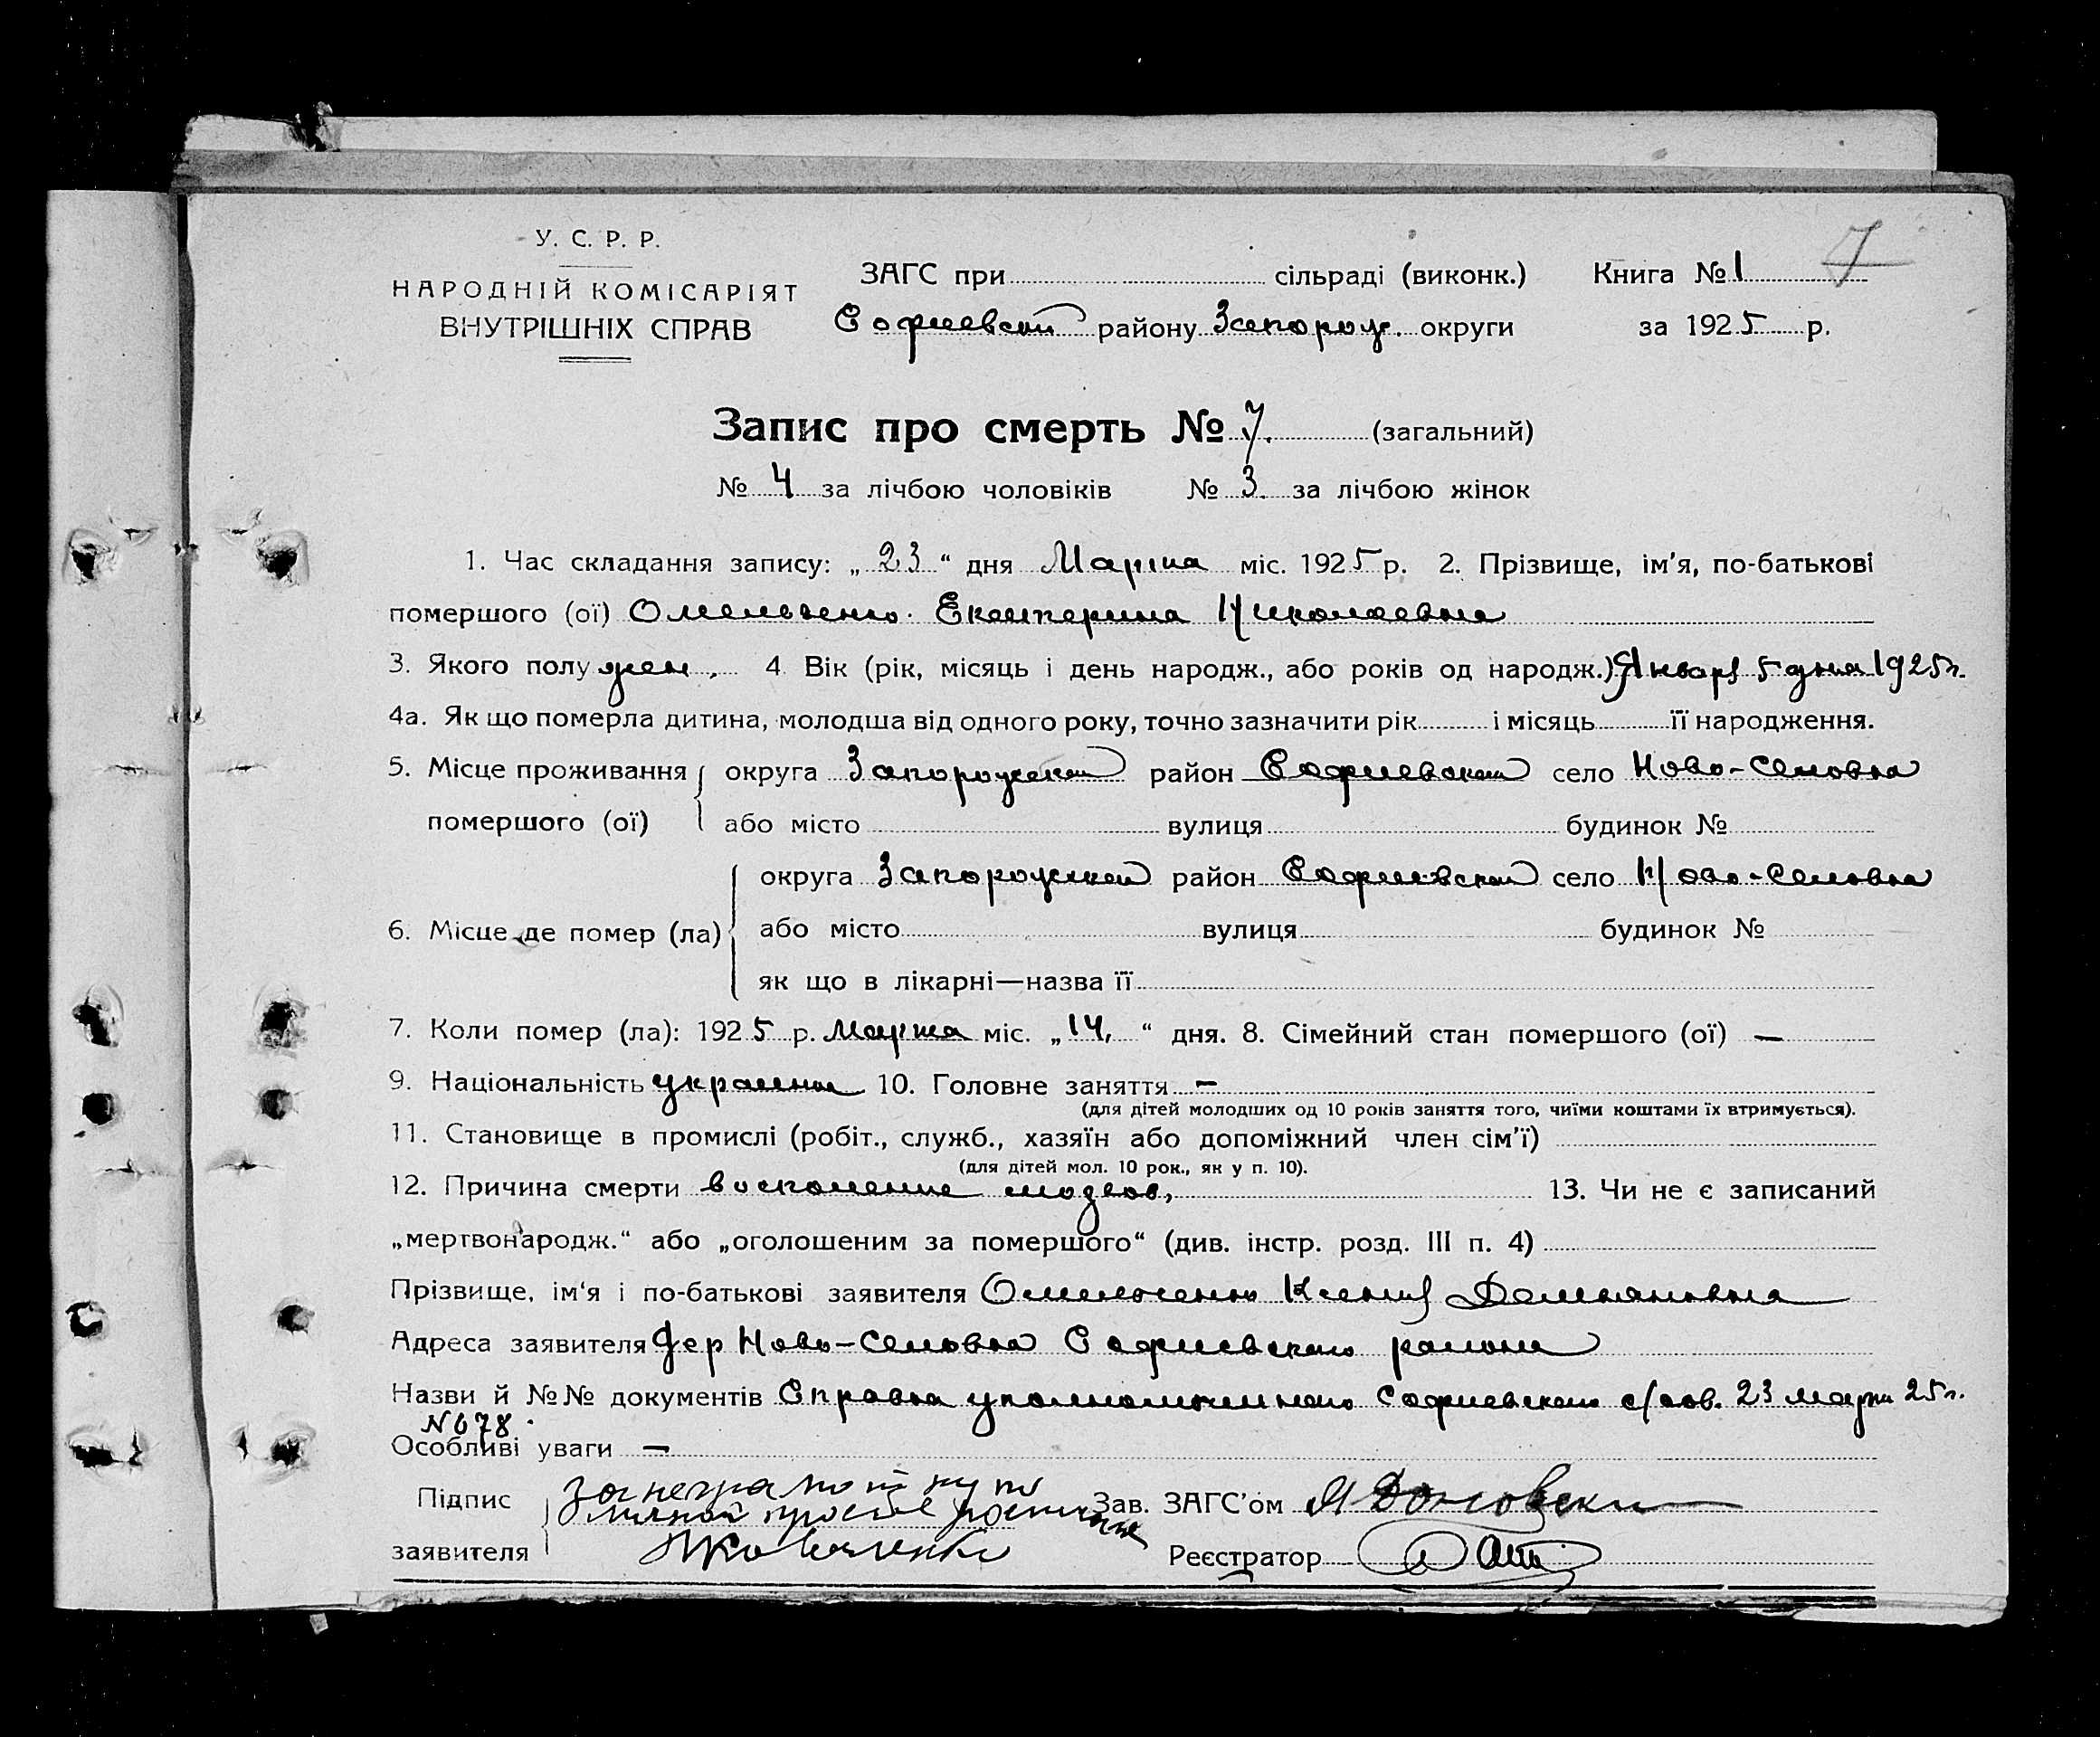 7
У. С. Р. Р.
НАРОДНІЙ КОМІСАРІЯТ
ВНУТРІШНІХ СПРАВ
ЗАГС при сільраді (виконк.) Книга № 1
Софиевский району Запорож. округи за 1925 р.
Запис про смерть № 7. (загальний)
№ 4 за лічбою чоловіків № 3. за лічбою жінок
1. Час складання запису: „23“ дня Марта міс. 1925 р. 2. Прізвище, ім'я, по-батькові
помершого (ої) Омельченко Екатерина Николаевна
3. Якого полу жен. 4. Вік (рік, місяць і день народж., або років од народж.) Января 5 дня 1925 г.
4а. Як що померла дитина, молодша від одного року, точно зазначити рік і місяць її народження.
5. Місце проживання округа Запорожский район Софиевский село Ново-Селовка
помершого (ої) або місто вулиця будинок №
округа Запорожский район Софиевский село Ново-Селовка
6. Місце де помер (ла) або місто вулиця будинок №
як що в лікарні—назва її
7. Коли помер (ла): 1925 р. Марта міс. „14.“ дня. 8. Сімейний стан помершого (ої) —
9. Національність 10. Головне заняття —
(для дітей молодших од 10 років заняття того, чиїми коштами їх втримується).
11. Становище в промислі (робіт., служб., хазяїн або допоміжний член сім'ї)
(для дітей мол. 10 рок., як у п. 10).
12. Причина смерти 13. Чи не є записаний
„мертвонародж.“ або „оголошеним за помершого“ (див. інстр. розд. III п. 4)
Прізвище, ім'я і по-батькові заявителя Омельченко Ксения Демьяновна
Адреса заявителя дер Ново-Селовка Софиевского района
Назви й №№ документів Справка уполномоченного Софиевского с/сов. 23 марта 25 г.
№ 678.
Особливі уваги —
Підпис за неграмотную
Зав. ЗАГС'ом
заявителя
Реєстратор